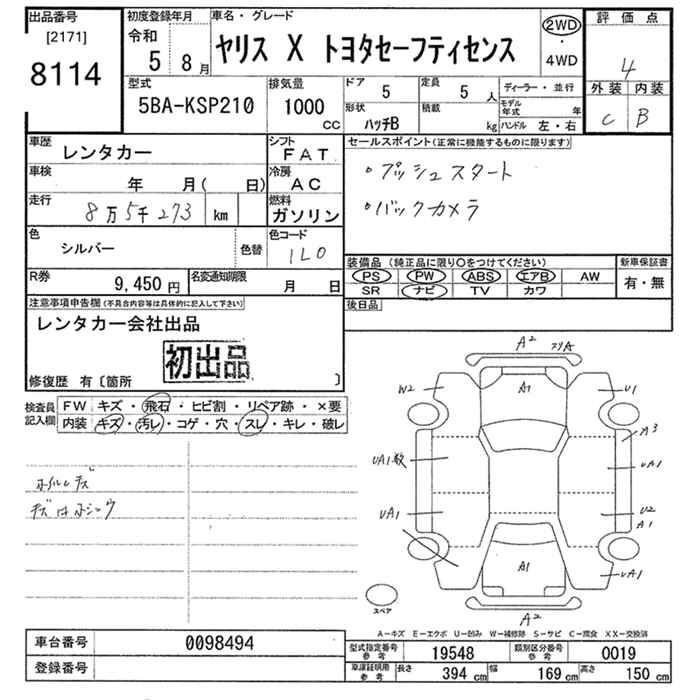 出品番号
[2171]
8114
初度登録年月
令和
5 8月
車名・グレード
ヤリス X トヨタセーフティセンス
2WD
・
4WD
評価点
4
外装 内装
C B
型式
5BA-KSP210
排気量
1000
CC
ドア 5
定員 5 人
形状
ハッチB
積載
kg
ディーラー・並行
モデル年式 年
ハンドル 左・右
車歴
レンタカー
シフト
FAT
車検
年 月( 日)
冷房
AC
走行
8万5千273 km
燃料
ガソリン
色
シルバー
色替
色コード
1L0
R券
9,450円
名変通知期限
月 日
セールスポイント(正常に機能するものに限ります)
・プッシュスタート
・バックカメラ
装備品(純正品に限り○をつけてください)
PS PW ABS エアB AW
SR ナビ TV カワ
新車保証書
有・無
後日品
注意事項申告欄(不具合内容等は具体的に記入して下さい)
レンタカー会社出品
初出品
修復歴 有〔箇所 〕
検査員
記入欄
FW キズ・飛石・ヒビ割・リペア跡・×要
内装 キズ・汚レ・コゲ・穴・スレ・キレ・破レ
ホイルキズ
キズ
A2
W2
A1
U1
A3
UA1数
UA1
UA1
U2
A1
A1
UA1
スペア
A2
A-キズ E-エクボ U-凹み W-補修跡 S-サビ C-腐食 XX-交換済
車台番号 0098494
登録番号
型式指定番号
参考
19548
類別区分番号
参考
0019
車庫証明用
参考
長さ 394 cm 幅 169 cm 高さ 150 cm